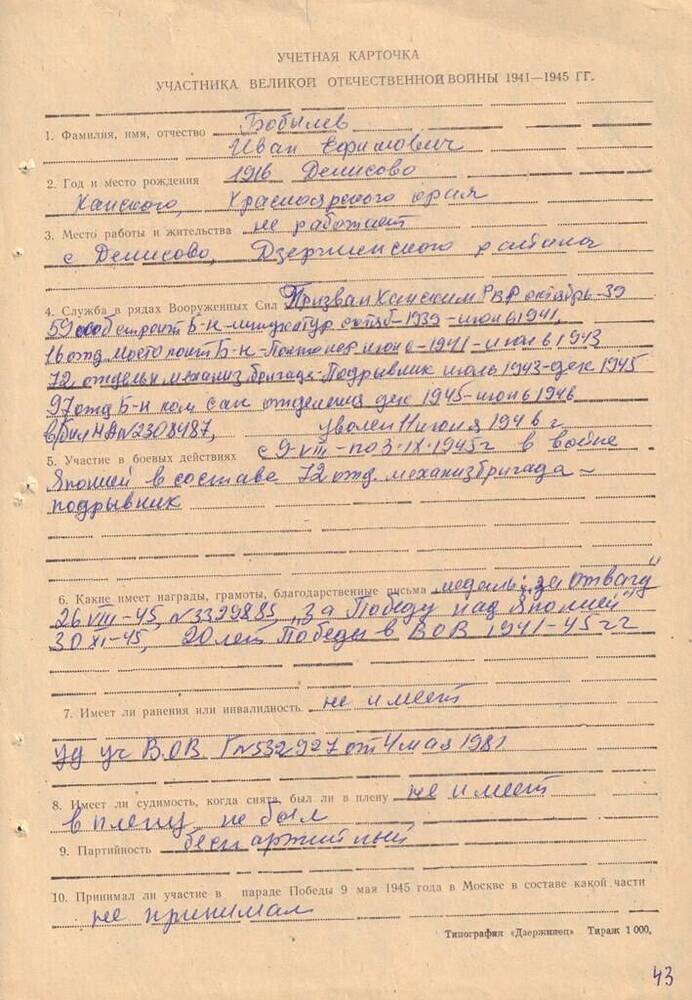 УЧЕТНАЯ КАРТОЧКА
УЧАСТНИКА ВЕЛИКОЙ ОТЕЧЕСТВЕННОЙ ВОЙНЫ 1941—1945 ГГ.
1. Фамилия, имя, отчество Бобылев
Иван Ефимович
2. Год и место рождения 1916 Денисово
Канского, Красноярского края
3. Место работы и жительства не работает
с Денисово, Дзержинского района
4. Служба в рядах Вооруженных Сил Призван Канским РВК октябрь-39
59 особ строит Б-н октяб-1939-июнь 1941,
16 отд. мостопонт Б-н-Понтонер июнь-1941-июль 1943
72 отдельн механиз бригада-Подрывник июль 1943-дек 1945
97 отд Б-н ком сап отделения дек 1945-июнь 1946
в/бил НД №2308487, уволен 11 июня 1946 г.
5. Участие в боевых действиях с 9-VIII-по 3-IX-1945г в войне
Японией в составе 72 отд. механизбригада-
подрывник
6. Какие имеет награды, грамоты, благодарственные письма медаль: „за отвагу"
26 VIII-45, №3329885, „За Победу над Японией"
30 XI-45, 20 лет Победы в ВОВ 1941-45 гг
7. Имеет ли ранения или инвалидность не имеет
уд уч В.ОВ Г №532927 от 4 мая 1981
8. Имеет ли судимость, когда снята, был ли в плену не имеет
в плену не был
9. Партийность беспартийный
10. Принимал ли участие в параде Победы 9 мая 1945 года в Москве в составе какой части
не принимал
Типография «Дзержинец» Тираж 1 000.
43